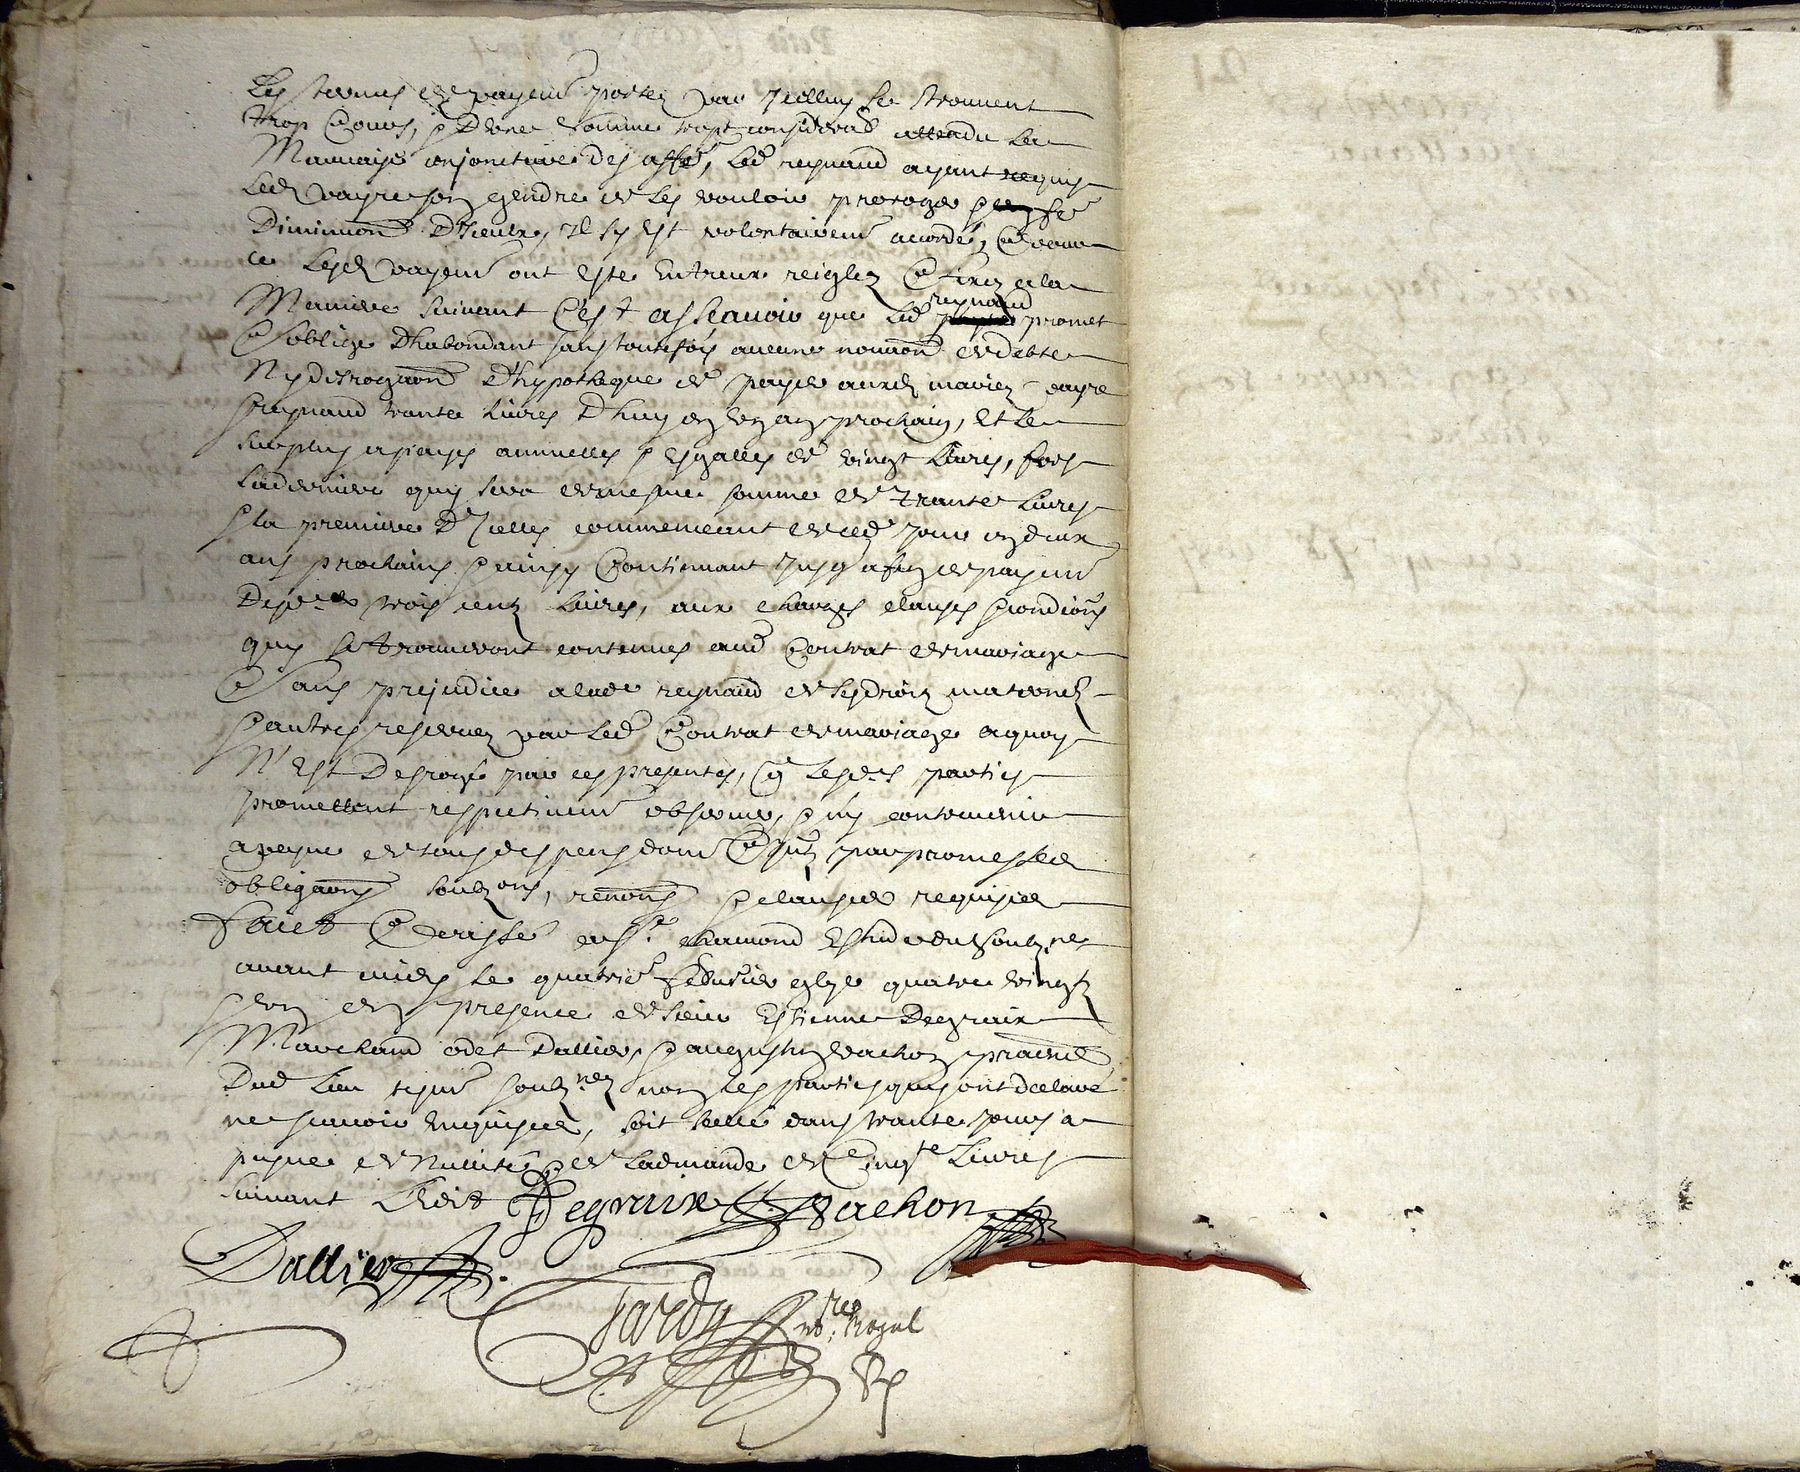 Les termes de payem.t portez par Icelluy se trouuent
trop Cours, & D'vne somme trop considerab. attendu la
Mauuaise conjoncture des aff.res, Led. reynaud ayant requis
Led. vayre son gendre de les vouloir proroger &
Diminuon D'Iceulx, Il s'y est volontairem.t accordé, &
ce Lesd. payem.t ont esté Entreux reiglez & fixez a la
Maniere suiuant C'est assauoir que Led. reynaud promet
& s'oblige D'habondant sans toutefois aucune nouaon de debte
Ny desrogaon D'hypotheque de payer auxd. mariez vayre
& reynaud trante Liures D'huy en vng an prochain, Et le
surplus a payes annuelles & esgalles de vingt Liures, fors
La derniere quy sera de mesme somme de trante Liures
& la premiere D'Icelles commenceant de ced. jour en deux
ans prochains & ainsy Continuant Jusq. a fin de payem.t
Desd. trois cent Liures, aux charges clauses & condions
quy se trouueront contenues aud. Contrat de mariage
& sans prejudice a lad. reynaud de ses droitz maternelz
& autres reseruez par Led. Contrat de mariage a quoy
N'est Desrogé par ces presentes, q. lesd. parties
promettent respectiuem.t obseruer, & n'y contreuenir
a peyne de tous despens dom. & Jntz par promesses
obligaons soubz.ons, renons & clauses requises
Faict & a S.t chamond Estude du soubz.né
auant midy le quatrie feburier gbje quatre vingtz
& vn en presence de sieur Estienne Degraix
Marchand odet Dallier, & augustin vachon praticien
Dud. Lieu tesm. soubz.nez non les parties quy ont declaré
ne scauoir Enquises, soit sellé dans trante jours a
peyne de Nullité & de L'admande de Cinq.te Liures
suiuant L'Edit Degraix Vachon
Dallier
Jardy no.re Royal